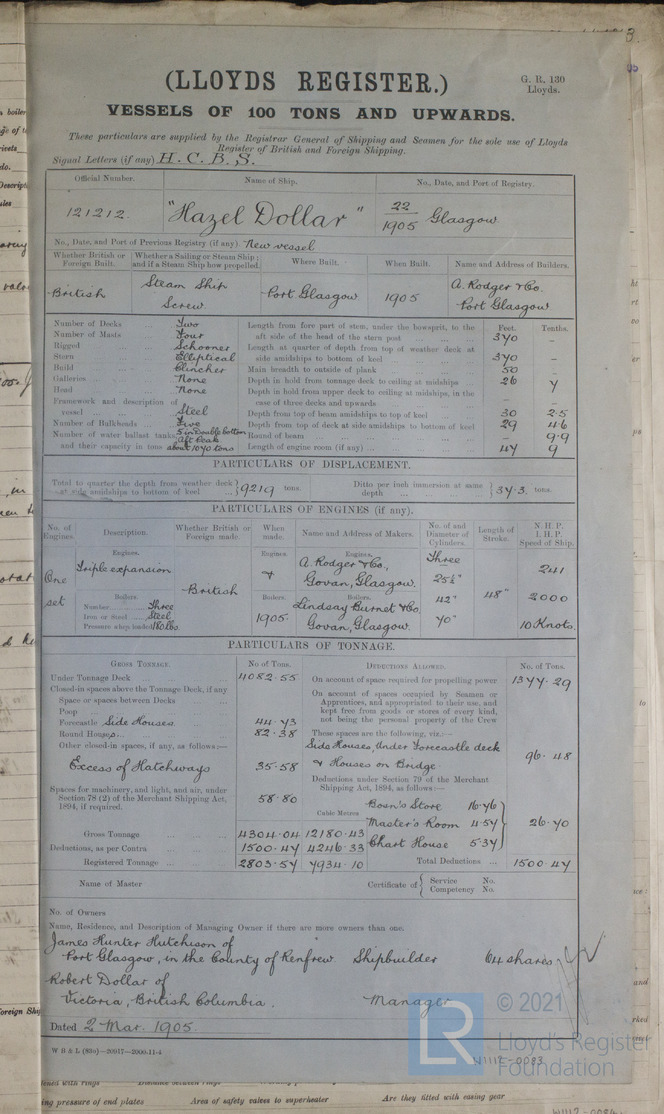 3.
(LLOYDS REGISTER.)
G. R. 130
Lloyds.
VESSELS OF 100 TONS AND UPWARDS.
These particulars are supplied by the Registrar General of Shipping and Seamen for the sole use of Lloyds
Register of British and Foreign Shipping.
Signal Letters (if any) H. C. B. S.
Official Number. Name of Ship. No., Date, and Port of Registry.
121212. "Hazel Dollar" 22/1905 Glasgow
No., Date, and Port of Previous Registry (if any) New vessel
Whether British or Foreign Built. Whether a Sailing or Steam Ship; and if a Steam Ship how propelled. Where Built. When Built. Name and Address of Builders.
British Steam Ship Screw Port Glasgow 1905 A. Rodger & Co. Port Glasgow
Number of Decks ... Two
Number of Masts ... Four
Rigged ... Schooner
Stern ... Elliptical
Build ... Clincher
Galleries ... None
Head ... None
Framework and description of vessel ... Steel
Number of Bulkheads ... Five
Number of water ballast tanks 5 in Double bottom aft Peak
and their capacity in tons about 1070 tons
Feet. Tenths.
Length from fore part of stem, under the bowsprit, to the aft side of the head of the stern post 370 -
Length at quarter of depth from top of weather deck at side amidships to bottom of keel 370 -
Main breadth to outside of plank 50 -
Depth in hold from tonnage deck to ceiling at midships 26 7
Depth in hold from upper deck to ceiling at midships, in the case of three decks and upwards - -
Depth from top of beam amidships to top of keel 30 2.5
Depth from top of deck at side amidships to bottom of keel 29 4.6
Round of beam - 9.9
Length of engine room (if any) 47 9
PARTICULARS OF DISPLACEMENT.
Total to quarter the depth from weather deck at side amidships to bottom of keel } 9219 tons. Ditto per inch immersion at same depth } 37.3. tons.
PARTICULARS OF ENGINES (if any).
No. of Engines. Description. Whether British or Foreign made. When made. Name and Address of Makers. No. of and Diameter of Cylinders. Length of Stroke. N.H.P. I.H.P. Speed of Ship.
Engines. Engines. Engines.
One set Triple expansion British & A. Rodger & Co, Govan, Glasgow. Three 25½" 48" 241
Boilers. Boilers. Boilers.
Number Three Lindsay Burnet & Co 42" 2000
Iron or Steel Steel 1905. Govan, Glasgow 70" 10 Knots
Pressure when loaded 180 lbs.
PARTICULARS OF TONNAGE.
GROSS TONNAGE. No of Tons.
Under Tonnage Deck 4082.55
Closed-in spaces above the Tonnage Deck, if any
Space or spaces between Decks
Poop
Forecastle Side Houses 44.73
Round Houses 82.38
Other closed-in spaces, if any, as follows:—
Excess of Hatchways 35.58
Spaces for machinery, and light, and air, under
Section 78 (2) of the Merchant Shipping Act,
1894, if required. 58.80
Cubic Metres
Gross Tonnage 4304.04 12180.43
Deductions, as per Contra 1500.47 4246.33
Registered Tonnage 2803.57 7934.10
DEDUCTIONS ALLOWED. No. of Tons.
On account of space required for propelling power 1377.29
On account of spaces occupied by Seamen or
Apprentices, and appropriated to their use, and
kept free from goods or stores of every kind,
not being the personal property of the Crew
These spaces are the following, viz.:—
Side Houses, Under Forecastle deck
& Houses on Bridge 96.48
Deductions under Section 79 of the Merchant
Shipping Act, 1894, as follows:—
Bosn's Store 16.76
Master's Room 4.57 26.70
Chart House 5.37
Total Deductions 1500.47
Name of Master Certificate of { Service No. Competency No.
No. of Owners
Name, Residence, and Description of Managing Owner if there are more owners than one.
James Hunter Hutchison of
Port Glasgow, in the County of Renfrew Shipbuilder 64 shares
Robert Dollar of
Victoria, British Columbia. Manager
Dated 2 Mar. 1905.
W B & L (83w)—20917—2000-11-4
W1112-0083
© 2021
LR
Lloyd's Register
Foundation
Area of safety valves to superheater
Are they fitted with easing gear
ing pressure of end plates